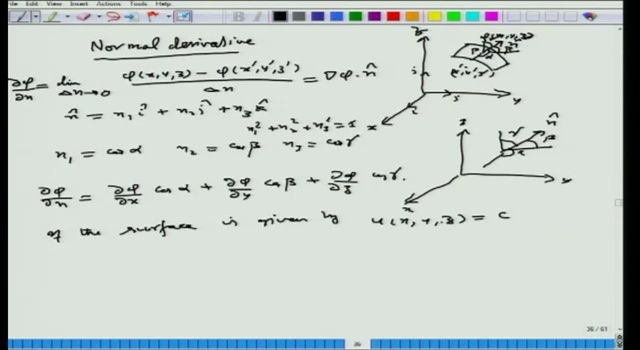 File Edit View Insert Actions Tools Help
Normal derivative
∂φ/∂n = lim Δn→0 (φ(x,y,z) − φ(x',y',z'))/Δn = ∇φ·n̂
n̂ = n₁ î + n₂ ĵ + n₃ k̂
n₁² + n₂² + n₃² = 1
n₁ = cos α n₂ = cos β n₃ = cos γ
∂φ/∂n = ∂φ/∂x cos α + ∂φ/∂y cos β + ∂φ/∂z cos γ
If the surface is given by u(x, y, z) = c
z
y
x
(x',y',z')
z
n̂
γ
β
α
y
x
26 / 61
26